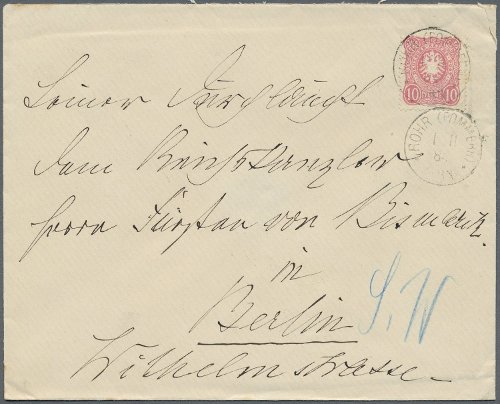 10 10
ROHR (POMMERN)
Seiner Durchlaucht
dem Reichskanzler
Herrn Fürsten von Bismarck.
in
Berlin S.W
Wilhelmstrasse